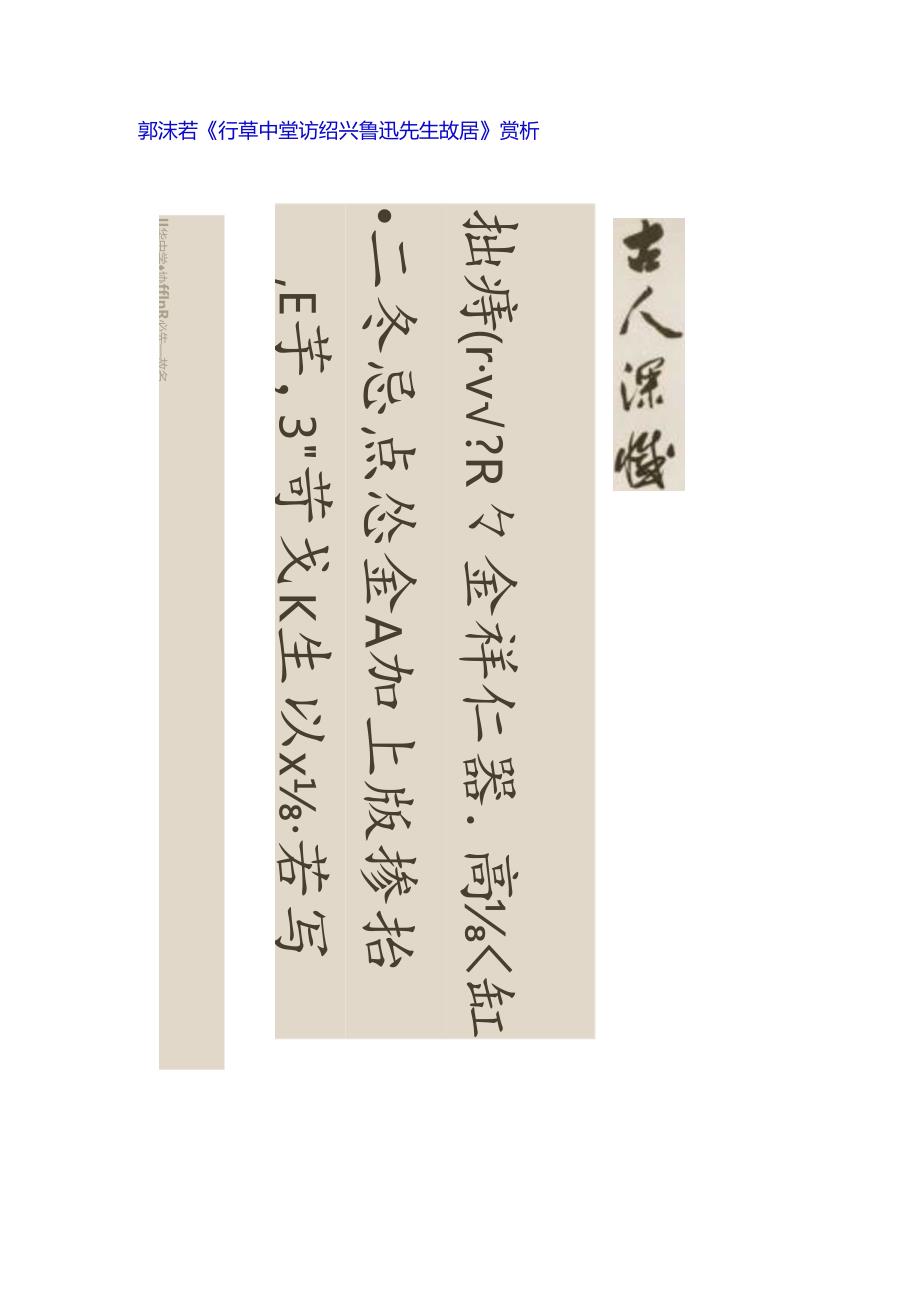 郭沫若《行草中堂访绍兴鲁迅先生故居》赏析
古人深懺
拙痔(r·v√?R 亇金祥仁器．高⅛く缸
•二冬忌点怂金A加上版掺抬
,E芋，3"苛戈K生以x⅛·若写